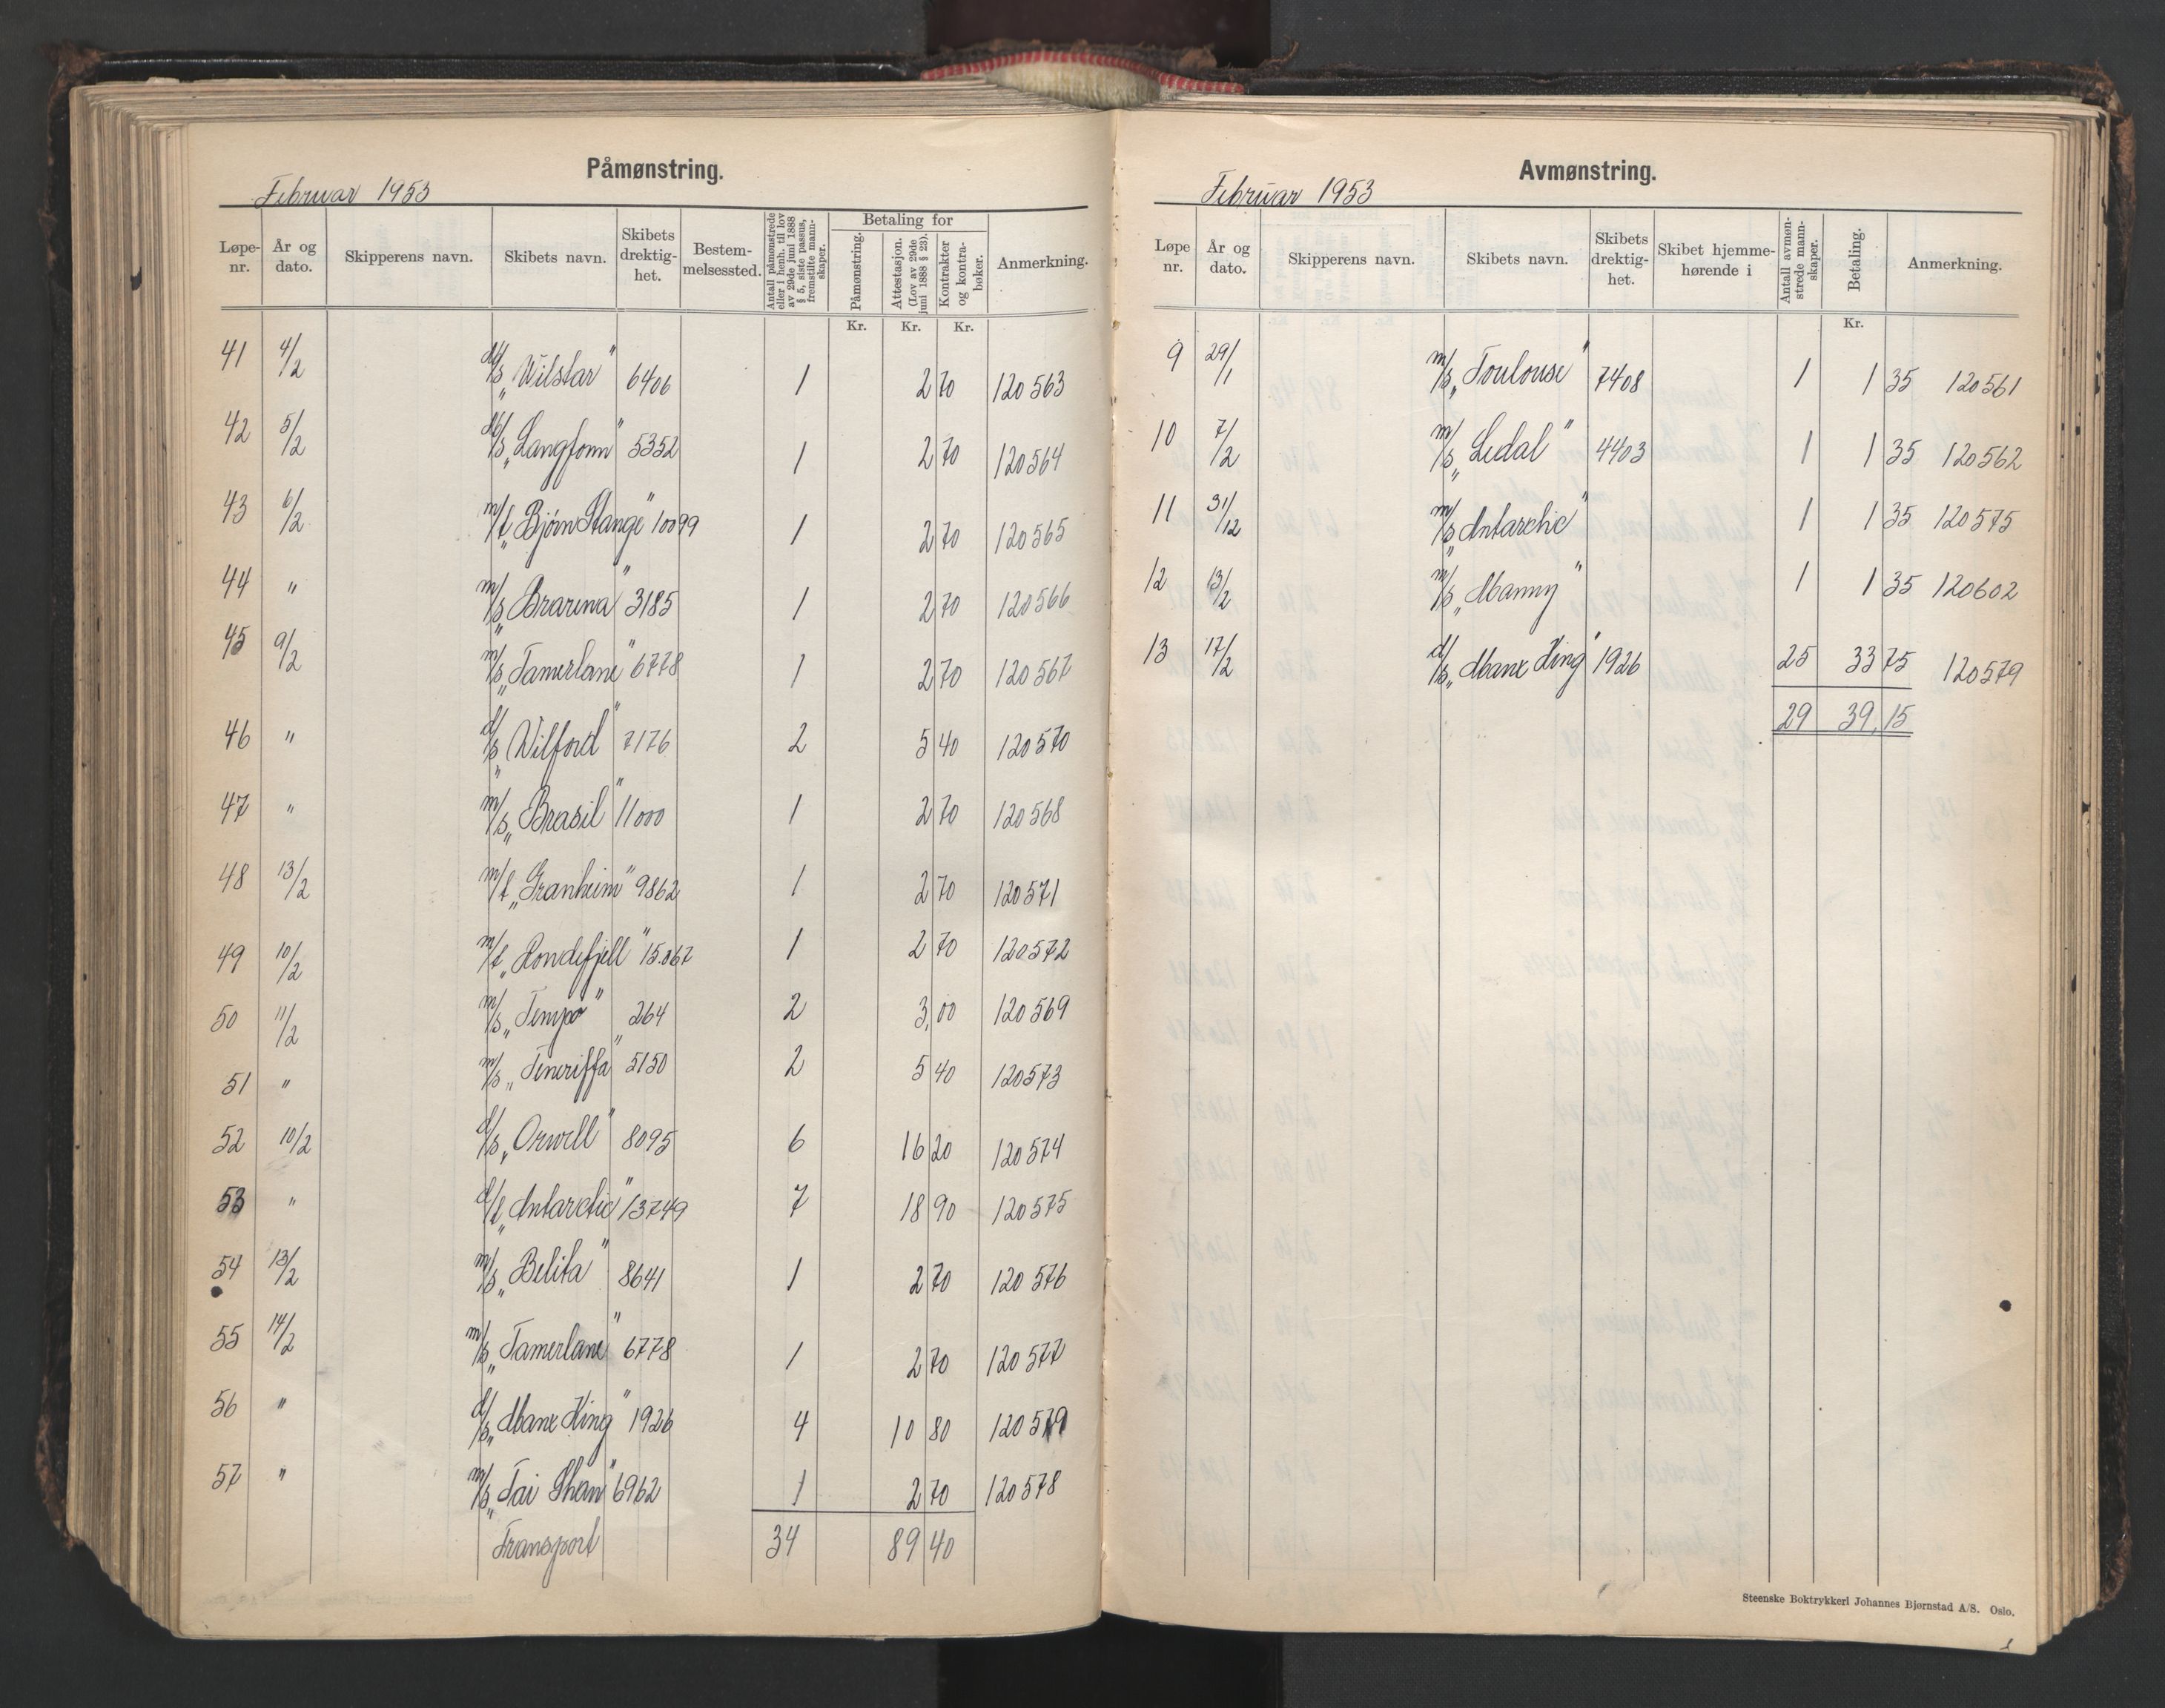 Påmønstring.
Februar 1953
Løpe-nr. År og dato. Skipperens navn. Skibets navn. Skibets drektig-het. Bestem-melsessted. Antall påmønstrede eller i henh. til lov av 29de juni 1888 § 5, siste passus, fremstilte mann-skaper. Betaling for Påmønstring. Attestasjon. (Lov av 29de juni 1888 § 23). Kontrakter og kontra-bøker. Anmerkning.
Kr. Kr. Kr.
41 4/2 „Wilstar" 6406 1 2 70 120563
42 5/2 „Langfonn" 5352 1 2 70 120564
43 6/2 m/t „Bjørn Stange" 10099 1 2 70 120565
44 " m/s „Brarena" 3185 1 2 70 120566
45 9/2 m/s „Tamerlane" 6778 1 2 70 120567
46 " d/s „Wilford" 7176 2 5 40 120570
47 " m/s „Brasil" 11000 1 2 70 120568
48 13/2 m/t „Granheim" 9862 1 2 70 120571
49 10/2 m/t „Rondefjell" 15.067 1 2 70 120572
50 11/2 m/s „Tempo" 264 2 3,00 120569
51 " m/s „Teneriffa" 5150 2 5 40 120573
52 10/2 d/s „Orwell" 8095 6 16 20 120574
53 " d/t „Antarctic" 13749 7 18 90 120575
54 13/2 m/s „Belita" 8641 1 2 70 120576
55 14/2 m/s „Tamerlane" 6778 1 2 70 120577
56 " d/s „Manx King" 1926 4 10 80 120579
57 " m/s „Tai Shan" 6962 1 2 70 120578
Transport 34 89 40
Avmønstring.
Februar 1953
Løpe nr. År og dato. Skipperens navn. Skibets navn. Skibets drektig-het. Skibet hjemme-hørende i Antall avmøn-strede mann-skaper. Betaling. Anmerkning.
Kr.
9 29/1 m/s „Toulouse" 7408 1 1 35 120561
10 7/2 m/s „Ledal" 4403 1 1 35 120562
11 31/12 m/s „Antarctic" 1 1 35 120575
12 13/2 m/s „Manny" 1 1 35 120602
13 17/2 d/s „Manx King" 1926 25 33 75 120579
29 39,15
Steenske Boktrykkeri Johannes Bjørnstad A/S. Oslo.